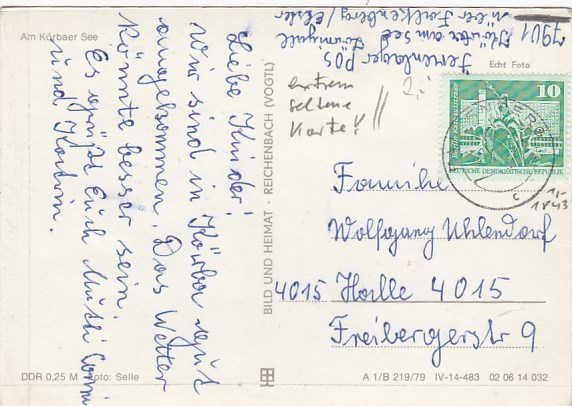 Am Körbaer See
Liebe Kinder!
Wir sind in Körba gut
angekommen. Das Wetter
könnte besser sein.
Es grüßt Euch Mutti Conni
und Katrin.
7901 Körba am See
über Falkenberg/Elster
Ferienlager POS
Echt Foto
extrem
seltene
Karte!
2,-
10
DEUTSCHE DEMOKRATISCHE REPUBLIK
c
1,-
1843
Familie
Wolfgang Uhlendorf
4015 Halle 4015
Freibergerstr 9
BILD UND HEIMAT · REICHENBACH (VOGTL)
DDR 0,25 M Foto: Selle
A 1/B 219/79 IV-14-483 02 06 14 032